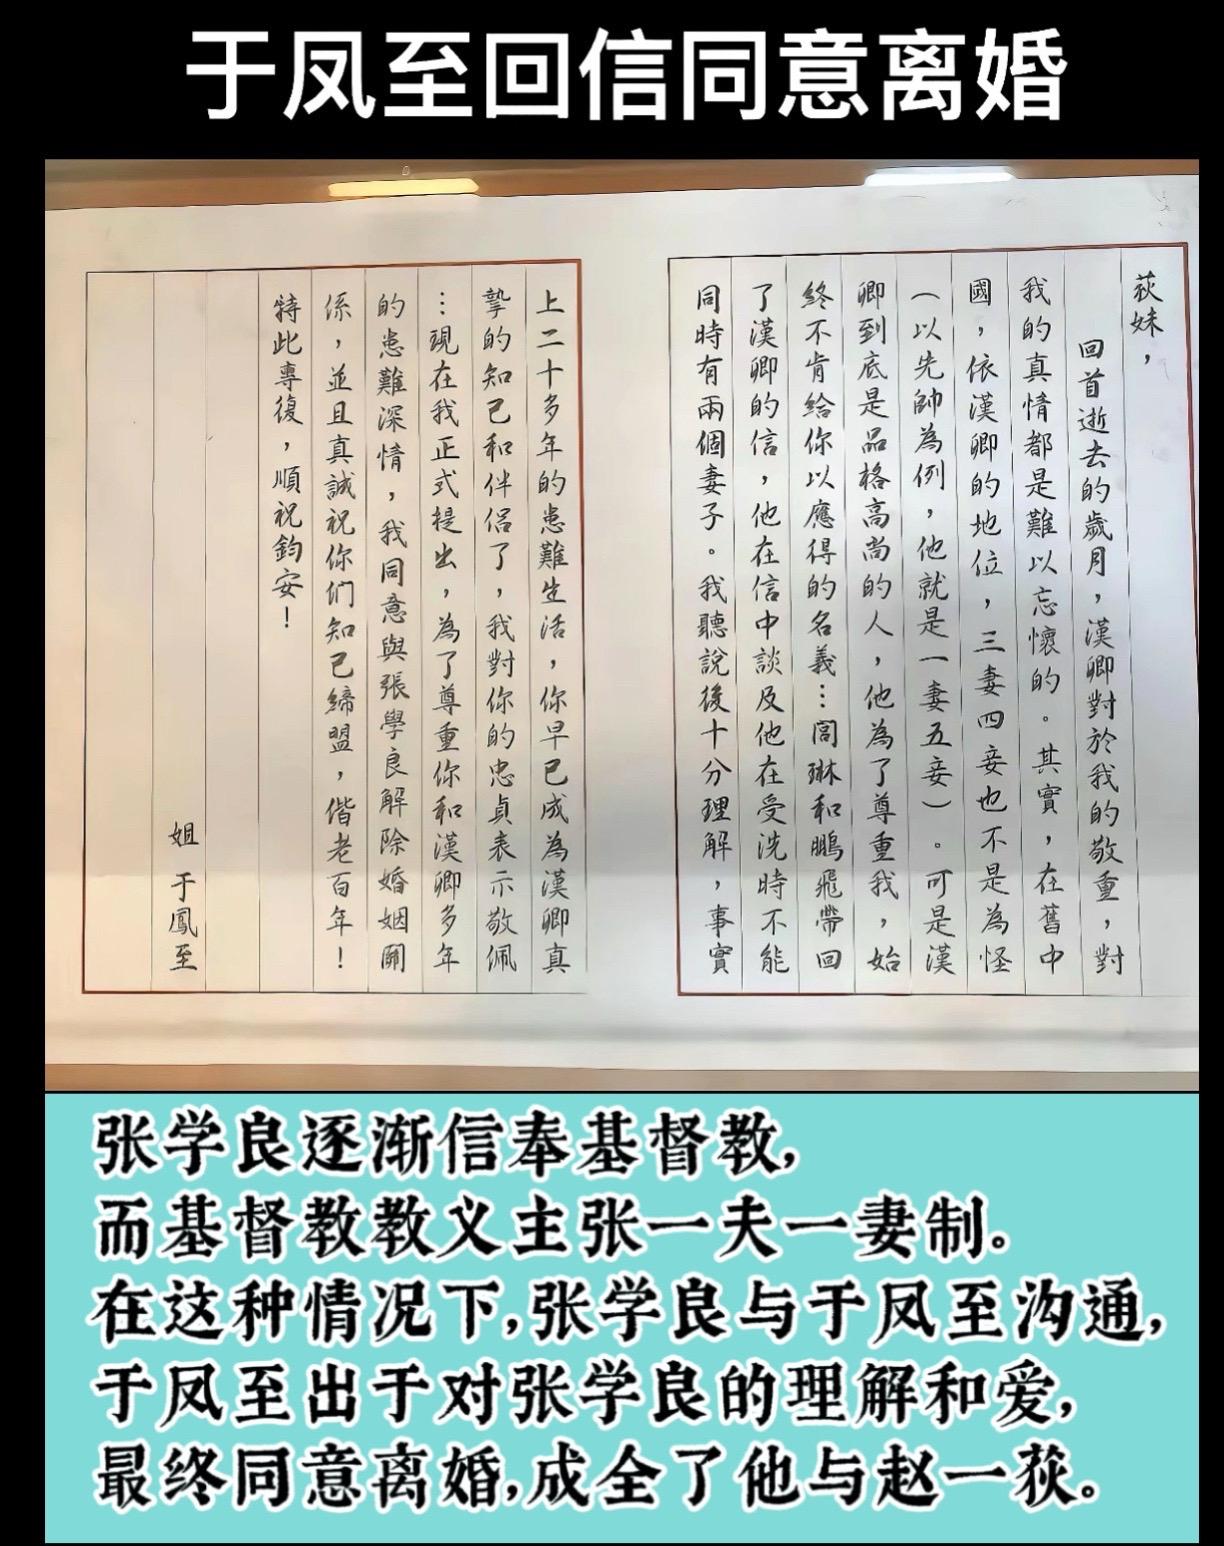 于凤至回信同意离婚
荻妹，
回首逝去的歲月，漢卿對於我的敬重，對
我的真情都是難以忘懷的。其實，在舊中
國，依漢卿的地位，三妻四妾也不是為怪
（以先帥為例，他就是一妻五妾）。可是漢
卿到底是品格高尚的人，他為了尊重我，始
終不肯給你以應得的名義…閭琳和鵬飛帶回
了漢卿的信，他在信中談及他在受洗時不能
同時有兩個妻子。我聽說後十分理解，事實
上二十多年的患難生活，你早已成為漢卿真
摯的知己和伴侶了，我對你的忠貞表示敬佩
…現在我正式提出，為了尊重你和漢卿多年
的患難深情，我同意與張學良解除婚姻關
係，並且真誠祝你们知己締盟，偕老百年！
特此專復，順祝鈞安！
姐 于鳳至
张学良逐渐信奉基督教，
而基督教教义主张一夫一妻制。
在这种情况下，张学良与于凤至沟通，
于凤至出于对张学良的理解和爱，
最终同意离婚，成全了他与赵一荻。